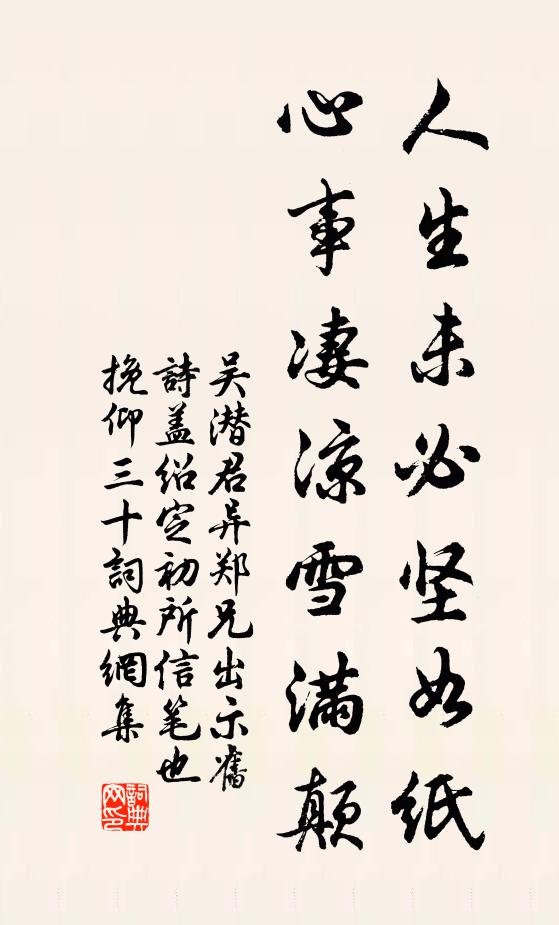 人生未必坚如纸
心事凄凉雪满颠
吴潜君异郑兄出示旧
詩盖绍定初所信笔也
挽仰三十詞典網集
詞典网印